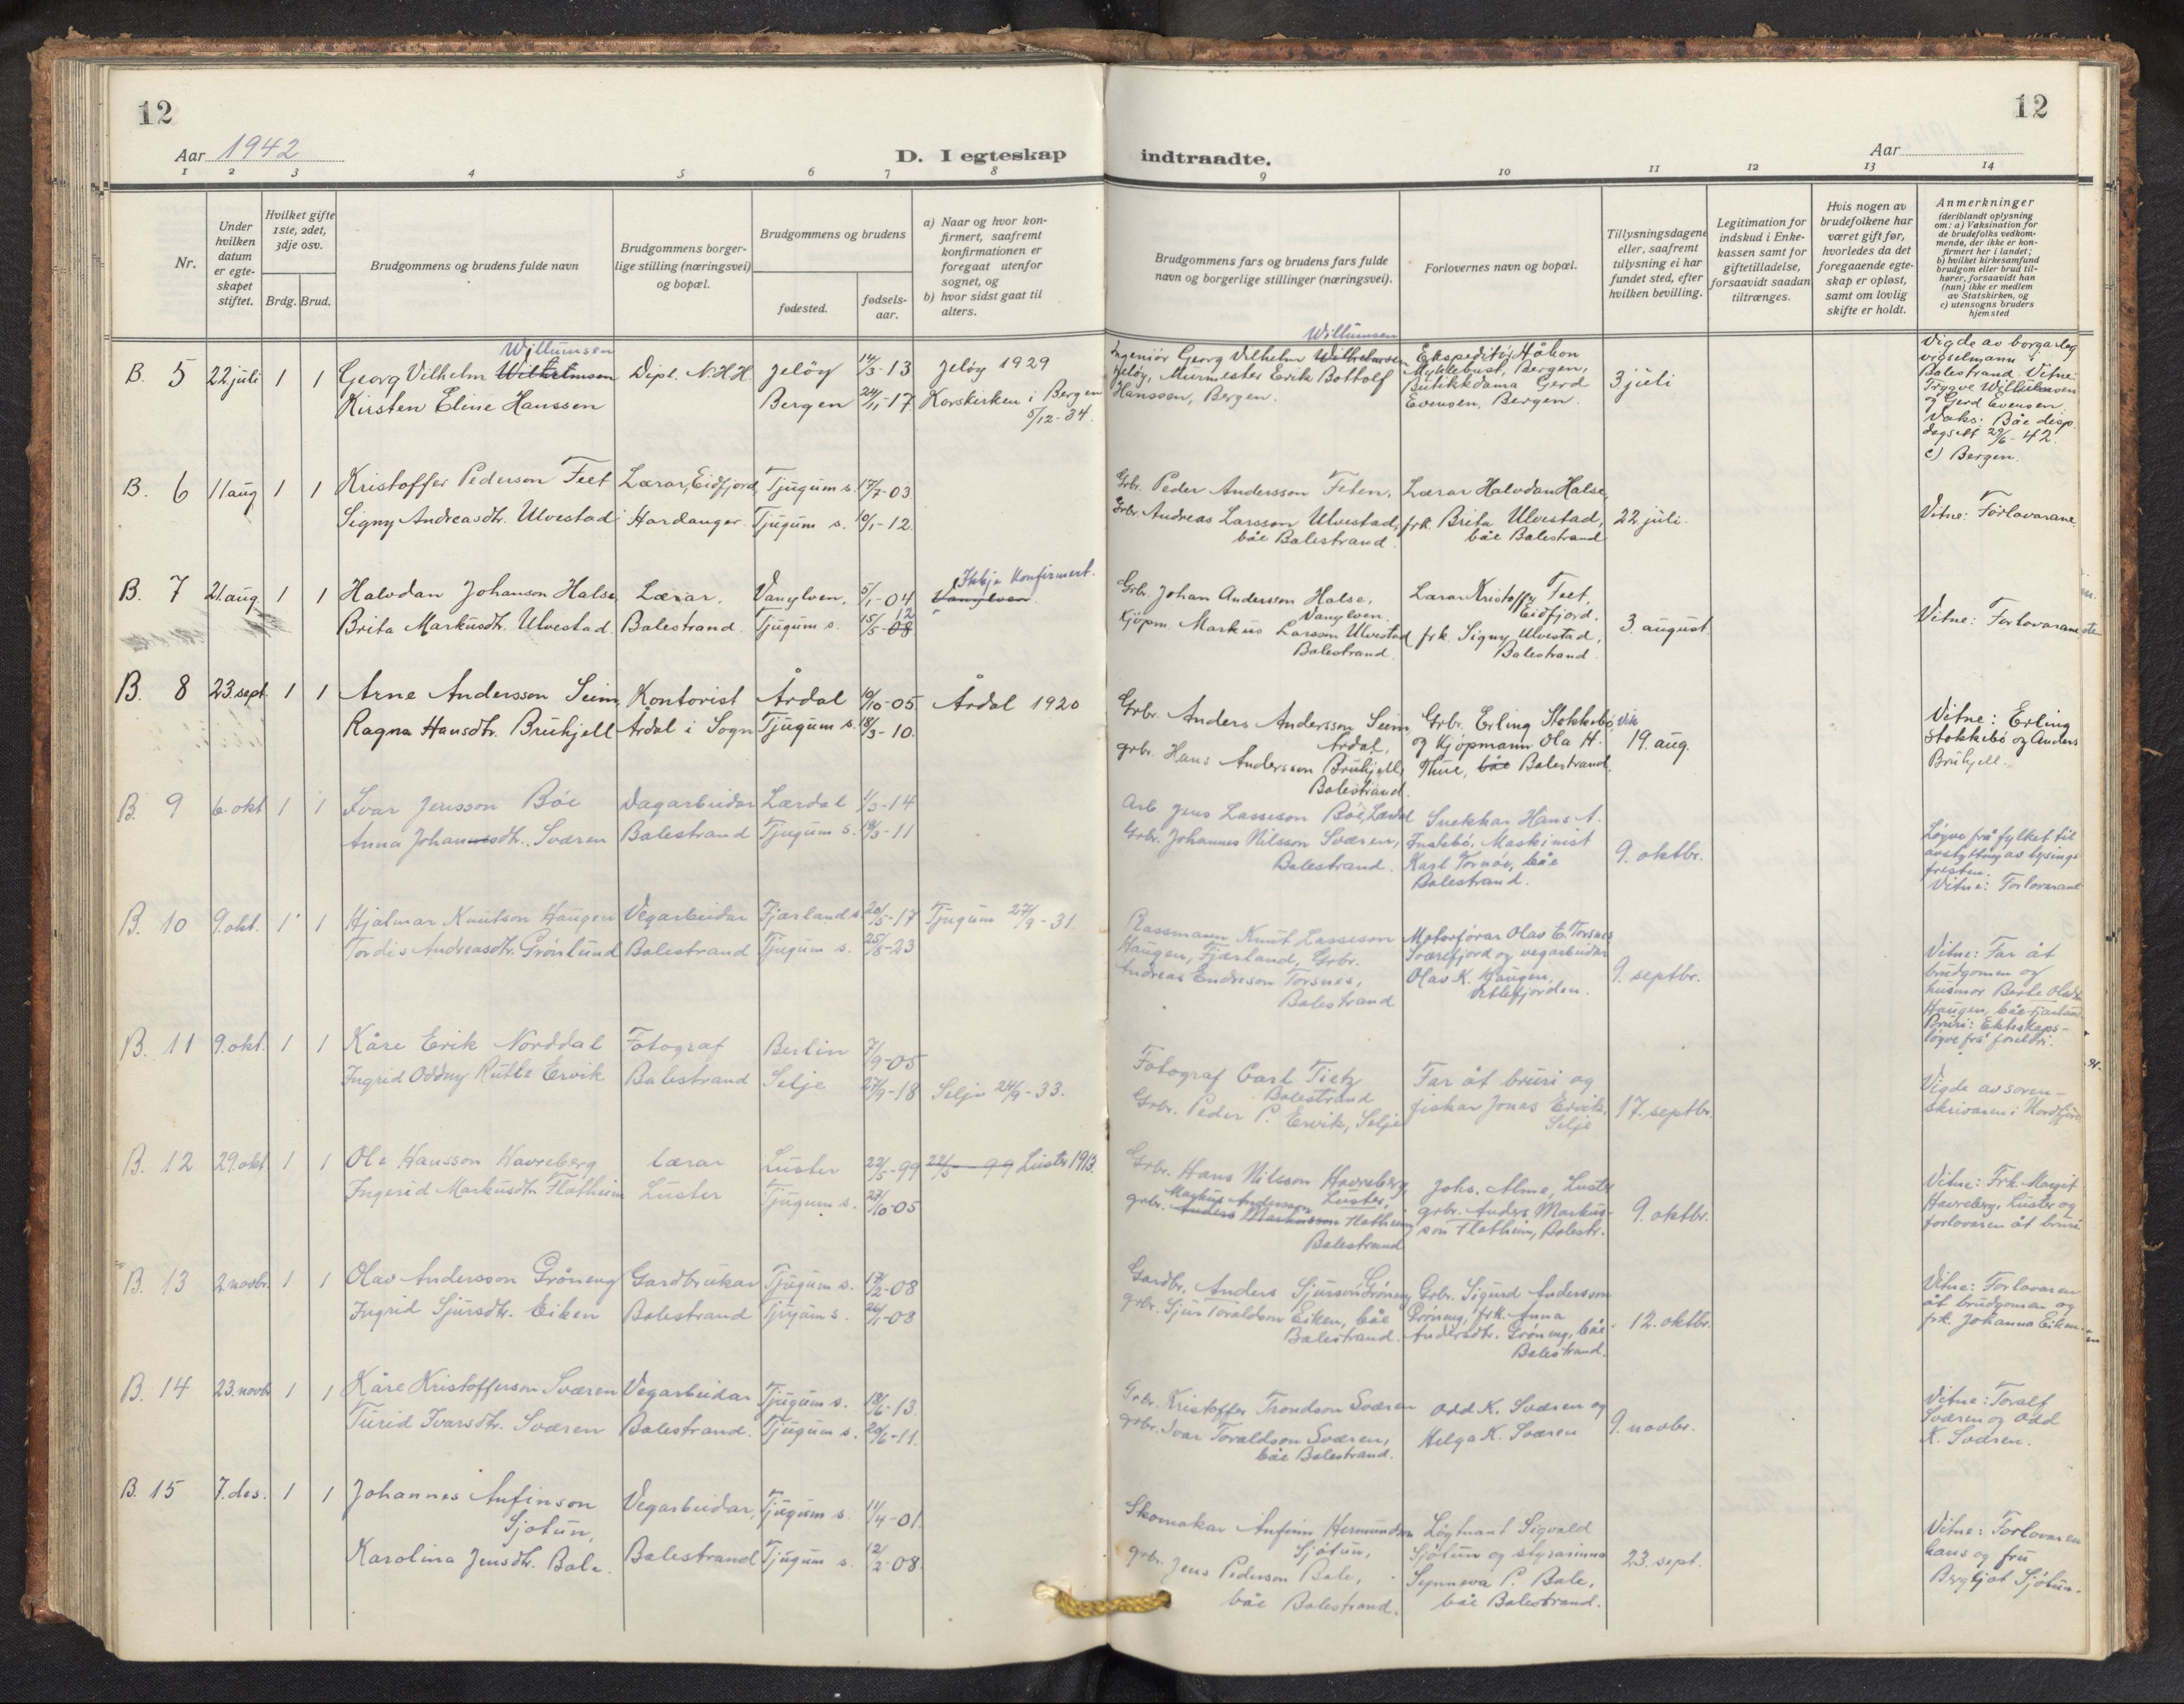 12
12
Aar 1942
D. I egteskap indtraadte.
Aar
1 2 3 4 5 6 7 8 9 10 11 12 13 14
Nr.
Under hvilken datum er egteskapet stiftet.
Hvilket gifte 1ste, 2det, 3dje osv.
Brdg. Brud.
Brudgommens og brudens fulde navn
Brudgommens borgerlige stilling (næringsvei) og bopæl.
Brudgommens og brudens
fødested.
fødselsaar.
a) Naar og hvor konfirmert, saafremt konfirmationen er foregaat utenfor sognet, og
b) hvor sidst gaat til alters.
Brudgommens fars og brudens fars fulde navn og borgerlige stillinger (næringsvei).
Forlovernes navn og bopæl.
Tillysningsdagene eller, saafremt tillysning ei har fundet sted, efter hvilken bevilling.
Legitimation for indskud i Enkekassen samt for giftetilladelse, forsaavidt saadan tiltrænges.
Hvis nogen av brudefolkene har været gift før, hvorledes da det foregaaende egteskap er opløst, samt om lovlig skifte er holdt.
Anmerkninger
(deriblandt oplysning om: a) Vaksination for de brudefolks vedkommende, der ikke er konfirmert her i landet; b) hvilket kirkesamfund brudgom eller brud tilhører, forsaavidt han (hun) ikke er medlem av Statskirken, og c) utensogns bruders hjemsted
B. 5 22 juli 1 1
Willumsen
Georg Vilhelm Wilhelmsen
Kirsten Eline Hanssen
Dipl. N.H.H.
Jeløy 14/3-13
Bergen 24/11-17
Jeløy 1929
Korskirken i Bergen
5/12-34.
Willumsen
Ingeniør Georg Vilhelm Wilhelmsen
Jeløy, Murmester Erik Bottolf
Hanssen, Bergen.
Ekspeditør Håkon
Myklebust, Bergen,
Butikkdama Gerd
Evensen, Bergen.
3 juli
Vigde av borgarleg
vigselmann i
Balestrand. Vitne:
Trygve Willumsen
og Gerd Evensen.
Vaks: Båe disp.
dagsett 29/6-42.
c) Bergen.
B. 6 11 aug 1 1
Kristoffer Pederson Feet
Signy Andreasdtr. Ulvestad
Lærar, Eidfjord,
Hardanger.
Tjugum s. 17/7-03
Tjugum s. 10/1-12.
Grb. Peder Andersson Feten,
Grb. Andreas Larsson Ulvestad,
båe Balestrand.
Lærar Halvdan Halse,
frk. Brita Ulvestad,
båe Balestrand
22 juli.
Vitne: Forlovarane.
B. 7 21. aug. 1 1
Halvdan Johanson Halse
Brita Markusdtr. Ulvestad.
Lærar.
Balestrand.
Vanylven. 5/1-04
Tjugum s. 15/5-08 12
Ikkje konfirmert.
Vanylven.
Grb. Johan Andersson Halse,
Vanylven.
Kjøpm. Markus Larsson Ulvestad
Balestrand.
Lærar Kristoffer Feet,
Eidfjord.
frk. Signy Ulvestad,
Balestrand.
3. august.
Vitne: Forlovarane
B. 8 23. sept. 1 1
Arne Andersson Seim
Ragna Hansdtr. Bruhjell
Kontorist
Årdal i Sogn
Årdal 10/10-05
Tjugum s. 18/3-10.
Årdal 1920
Grb. Anders Andersson Seim,
Årdal,
grb. Hans Andersson Bruhjell,
Balestrand.
Grb. Erling Stokkebø, Vik
og Kjøpmann Ola H.
Thue, båe Balestrand.
19. aug.
Vitne: Erling
Stokkebø og Anders
Bruhjell.
B. 9 6. okt 1 1
Ivar Jensson Bøe
Anna Johannesdtr. Sværen
Dagarbeidar
Balestrand
Lærdal 1/3-14
Tjugum s. 18/3-11
Arb. Jens Lasseson Bøe, Lærdal
Grb. Johannes Nilsson Sværen,
Balestrand.
Snekkar Hans A.
Instebø, Maskinist
Karl Tornøy, båe
Balestrand.
9. oktbr.
Løyve frå fylket til
avstytting av lysings-
fristen.
Vitne: Forlovarane
B. 10 9. okt. 1 1
Hjalmar Knutson Haugen
Tordis Andreasdtr. Grønlund
Vegarbeidar
Balestrand
Fjærland s. 20/5-17
Tjugum s. 25/8-23
Tjugum 27/9-31.
Rassmann Knut Lasseson
Haugen, Fjærland, Grb.
Andreas Endreson Torsnes,
Balestrand
Motorførar Olav E. Torsnes
Sværefjord og vegarbeidar
Olav K. Haugen,
Vetlefjorden.
9. septbr.
Vitne: Far åt
brudgomen og
husmor Berte Olsdtr.
Haugen, båe Fjærland
Bruri: Ekteskaps-
løyve frå foreldri.
B. 11 9. okt. 1 1
Kåre Erik Norddal
Ingrid Oddny Rutle Ervik
Fotograf
Balestrand
Berlin 7/9-05
Selje 27/9-18
Selje 24/9-33.
Fotograf Carl Tietz
Balestrand
Grb. Peder P. Ervik, Selje
Far åt bruri og
fiskar Jonas Ervik,
Selje
17. septbr.
Vigde av soren-
skrivaren i Nordfjord
B. 12 29. okt. 1 1
Ola Hansson Havreberg
Ingerid Markusdtr. Flatheim
lærar
Luster
Luster 22/5-99
Tjugum s. 23/10-05
22/5-99 Luster 1913.
Grb. Hans Nilsson Havreberg,
Luster,
Markus Andersson
grb. Anders Markusson Flatheim,
Balestrand
Johs. Alme, Luster
grb. Anders Markus-
son Flatheim, Balestr.
9. oktbr.
Vitne: Frk. Margit
Havreberg, Luster og
forlovaren åt bruri.
B. 13 2. novbr. 1 1
Olav Andersson Grøneng
Ingrid Sjursdtr. Eiken
Gardbrukar
Balestrand
Tjugum s. 17/2-08
Tjugum s. 26/1-08
Gardbr. Anders Sjurson Grøneng
grb. Sjur Toraldson Eiken, båe
Balestrand.
Grb. Sigurd Anderson
Grøneng, frk. Anna
Andersdtr. Grøneng, båe
Balestrand.
12. oktbr.
Vitne: Forlovaren
åt brudgomen og
frk. Johanna Eiken.
B. 14 23. novbr 1 1
Kåre Kristofferson Sværen
Turid Ivarsdtr. Sværen
Vegarbeidar
Balestrand.
Tjugum s. 18/6-13.
Tjugum s. 20/6-11.
Grb. Kristoffer Trondson Sværen
grb. Ivar Toraldson Sværen,
båe Balestrand.
Odd K. Sværen og
Helga K. Sværen
9. novbr.
Vitne: Toralf
Sværen og Odd
K. Sværen.
B. 15 7. des. 1 1
Johannes Anfinson
Sjøtun,
Karolina Jensdtr. Bale.
Vegarbeidar,
Balestrand
Tjugum s. 11/4-01.
Tjugum s. 12/2-08.
Skomakar Anfinn Hermundson
Sjøtun,
grb. Jens Pederson Bale,
båe Balestrand.
Løytnant Sigvald
Sjøtun og styrarinna
Synneva P. Bale,
båe Balestrand.
23. sept.
Vitne: Forlovaren
hans og fru
Bergljot Sjøtun.